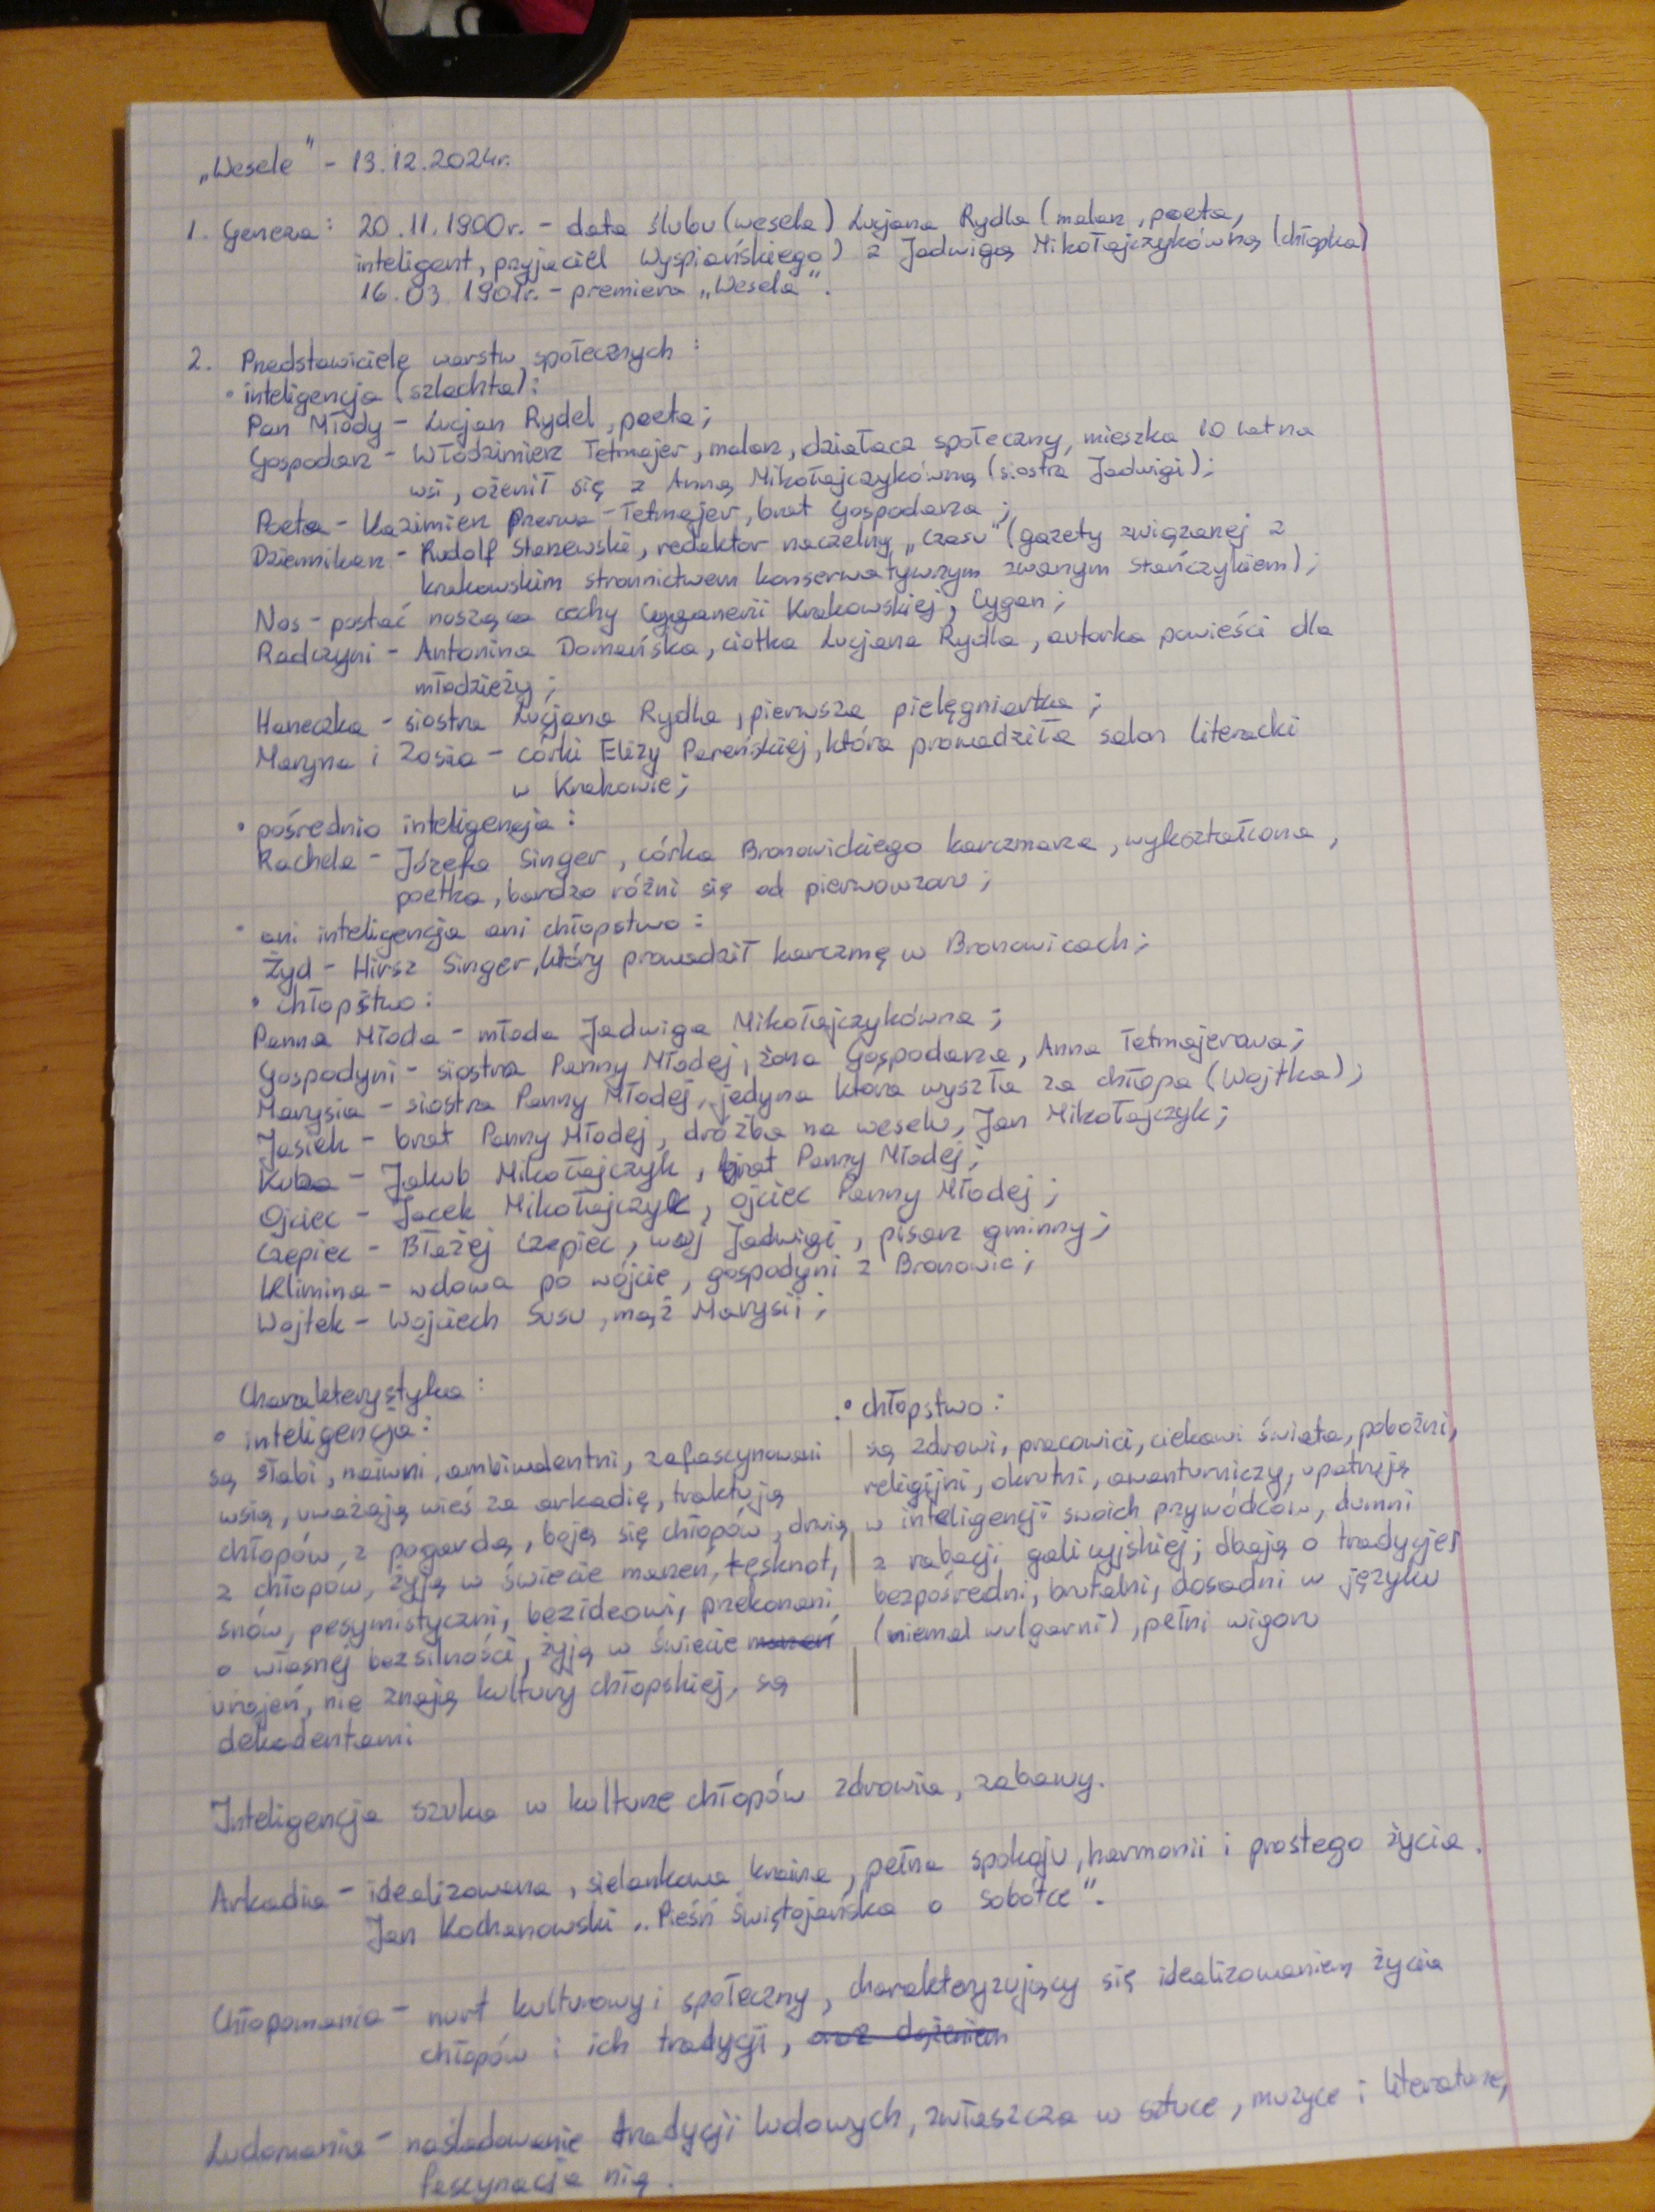 „Wesele" - 13.12.2024r.
1. Geneza: 20.11.1900r. - data ślubu (wesela) Lucjana Rydla (malarz, poeta,
inteligent, przyjaciel Wyspiańskiego) z Jadwigą Mikołajczykówną (chłopka)
16.03.1901r. - premiera „Wesela".
2. Przedstawiciele warstw społecznych:
• inteligencja (szlachta):
Pan Młody - Lucjan Rydel, poeta;
Gospodarz - Włodzimierz Tetmajer, malarz, działacz społeczny, mieszka 10 lat na
wsi, ożenił się z Anną Mikołajczykówną (siostra Jadwigi);
Poeta - Kazimierz Przerwa-Tetmajer, brat Gospodarza;
Dziennikarz - Rudolf Starzewski, redaktor naczelny „Czasu" (gazety związanej z
krakowskim stronnictwem konserwatywnym zwanym Stańczykiem);
Nos - postać nosząca cechy Cyganerii Krakowskiej, Cygan;
Radczyni - Antonina Domańska, ciotka Lucjana Rydla, autorka powieści dla
młodzieży;
Haneczka - siostra Lucjana Rydla, pierwsza pielęgniarka;
Maryna i Zosia - córki Elizy Pareńskiej, która prowadziła salon literacki
w Krakowie;
• pośrednio inteligencja:
Rachela - Józefa Singer, córka Bronowickiego karczmarza, wykształcona,
poetka, bardzo różni się od pierwowzoru;
• ani inteligencja ani chłopstwo:
Żyd - Hirsz Singer, który prowadził karczmę w Bronowicach;
• chłopstwo:
Panna Młoda - młoda Jadwiga Mikołajczykówna;
Gospodyni - siostra Panny Młodej, żona Gospodarza, Anna Tetmajerowa;
Marysia - siostra Panny Młodej, jedyna która wyszła za chłopa (Wojtka);
Jasiek - brat Panny Młodej, drużba na weselu, Jan Mikołajczyk;
Kuba - Jakub Mikołajczyk, brat Panny Młodej;
Ojciec - Jacek Mikołajczyk, ojciec Panny Młodej;
Czepiec - Błażej Czepiec, wuj Jadwigi, pisarz gminny;
Klimina - wdowa po wójcie, gospodyni z Bronowic;
Wojtek - Wojciech Susu, mąż Marysii;
Charakterystyka:
• inteligencja:
są słabi, naiwni, ambiwalentni, zafascynowani
wsią, uważają wieś za arkadię, traktują
chłopów z pogardą, boją się chłopów, drwią
z chłopów, żyją w świecie marzeń, tęsknot,
snów, pesymistyczni, bezideowi, przekonani
o własnej bezsilności, żyją w świecie marzeń
urojeń, nie znają kultury chłopskiej, są
dekadentami
• chłopstwo:
są zdrowi, pracowici, ciekawi świata, pobożni,
religijni, okrutni, awanturniczy, upatrują
w inteligencji swoich przywódców, dumni
z rabacji galicyjskiej; dbają o tradycje,
bezpośredni, brutalni, dosadni w języku
(niemal wulgarni), pełni wigoru
Inteligencja szuka w kulturze chłopów zdrowia, zabawy.
Arkadia - idealizowana, sielankowa kraina, pełna spokoju, harmonii i prostego życia.
Jan Kochanowski „Pieśń świętojańska o sobótce".
Chłopomania - nurt kulturowy i społeczny, charakteryzujący się idealizowaniem życia
chłopów i ich tradycji, oraz dążeniem
Ludomania - naśladowanie tradycji ludowych, zwłaszcza w sztuce, muzyce i literaturze,
fascynacja nią.